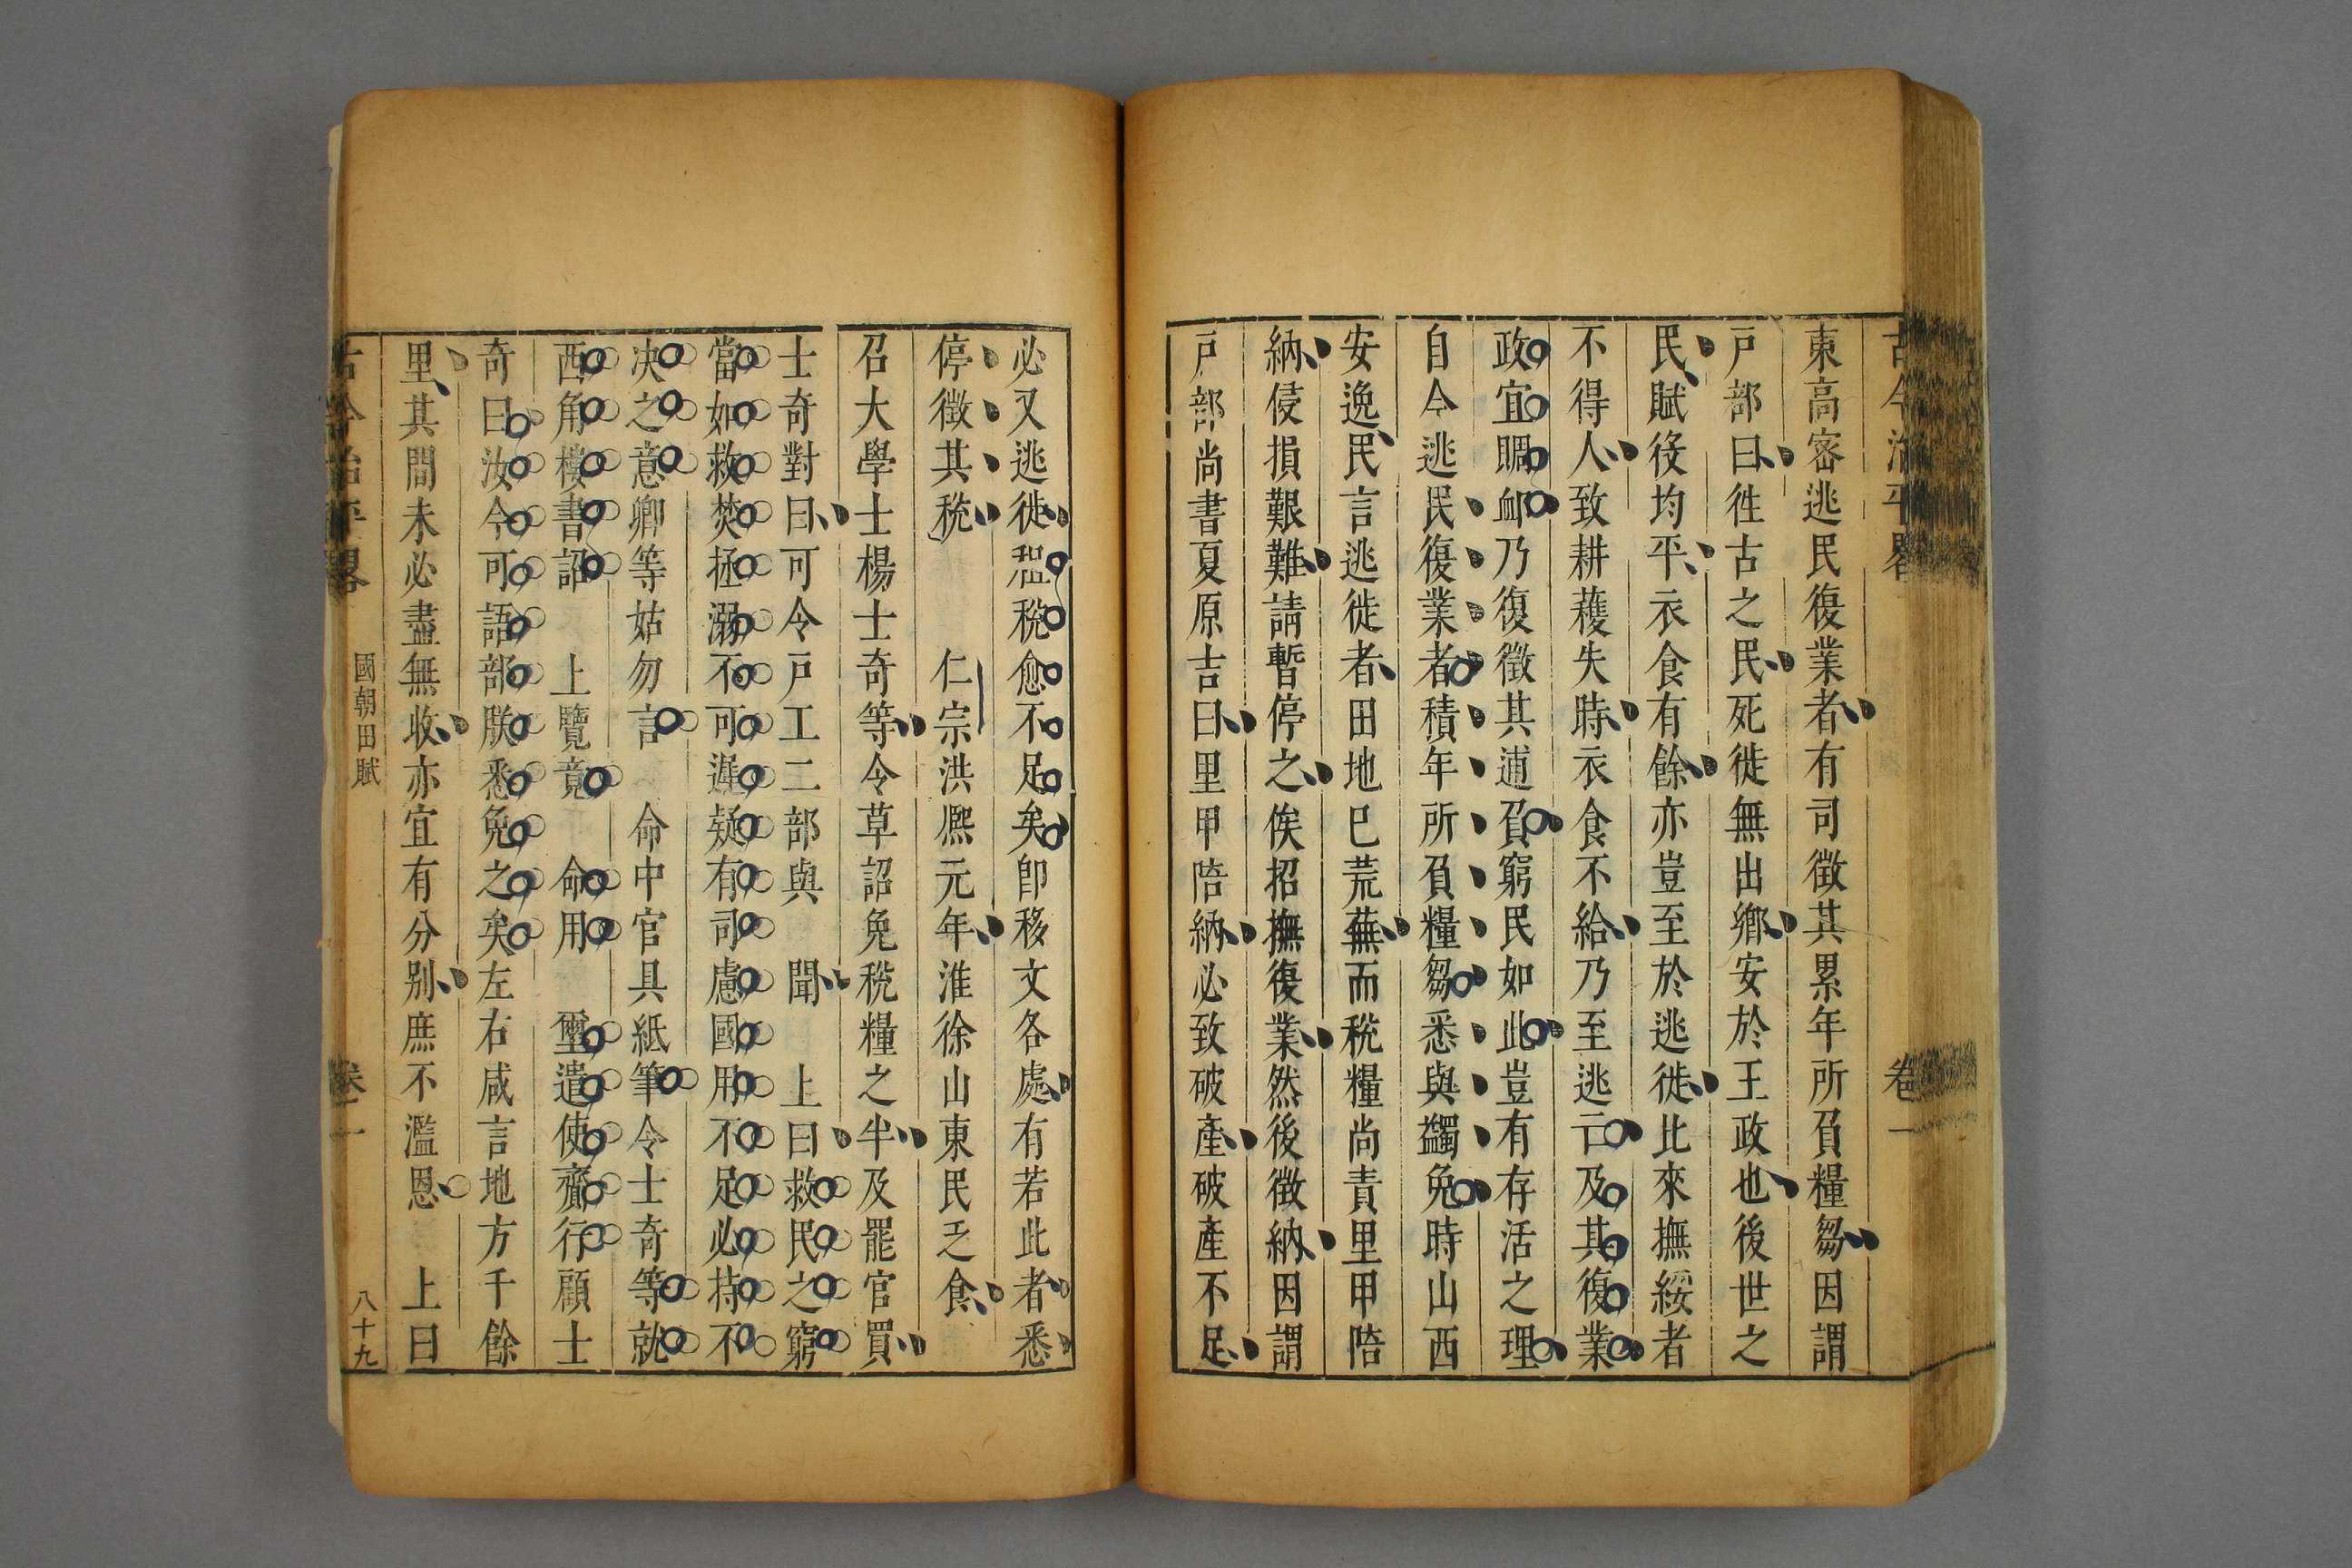 古今治平畧 卷一
東高密逃民復業者有司徵其累年所負糧芻因謂
戸部曰徃古之民死徙無出鄉安於王政也後世之
民賦役均平衣食有餘亦豈至於逃徙比來撫綏者
不得人致耕穫失時衣食不給乃至逃亡及其復業
政宜賙䘏乃復徵其逋負窮民如此豈有存活之理
自今逃民復業者積年所負糧芻悉與蠲免時山西
安逸民言逃徙者田地巳荒蕪而稅糧尚責里甲陪
納侵損艱難請暫停之俟招撫復業然後徵納因謂
戸部尚書夏原吉曰里甲陪納必致破產破產不足
必又逃徙租稅愈不足矣卽移文各處有若此者悉
停徵其稅 仁宗洪熈元年淮徐山東民乏食
召大學士楊士奇等令草詔免稅糧之半及罷官買
士奇對曰可令戸工二部與 聞 上曰救民之窮
當如救焚拯溺不可遲疑有司慮國用不足必持不
决之意卿等姑勿言 命中官具紙筆令士奇等就
西角樓書詔 上覽竟 命用 璽遣使齎行顧士
奇曰汝今可語部朕悉免之矣左右咸言地方千餘
里其間未必盡無收亦宜有分别庶不濫恩 上曰
古今治平畧 國朝田賦 卷一 八十九